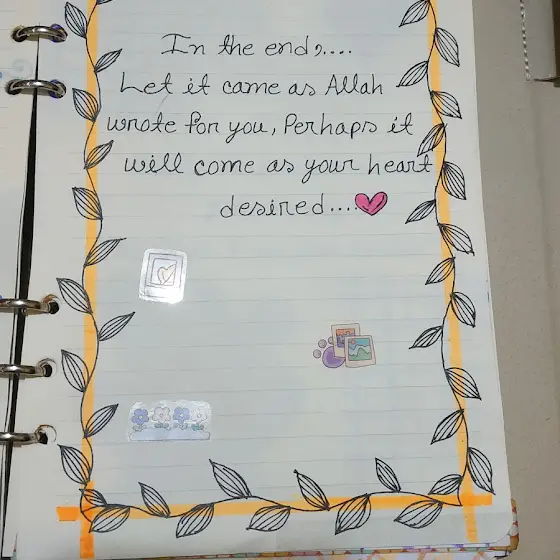 In the end,....
Let it came as Allah
wrote for you, Perhaps it
will come as your heart
desired....